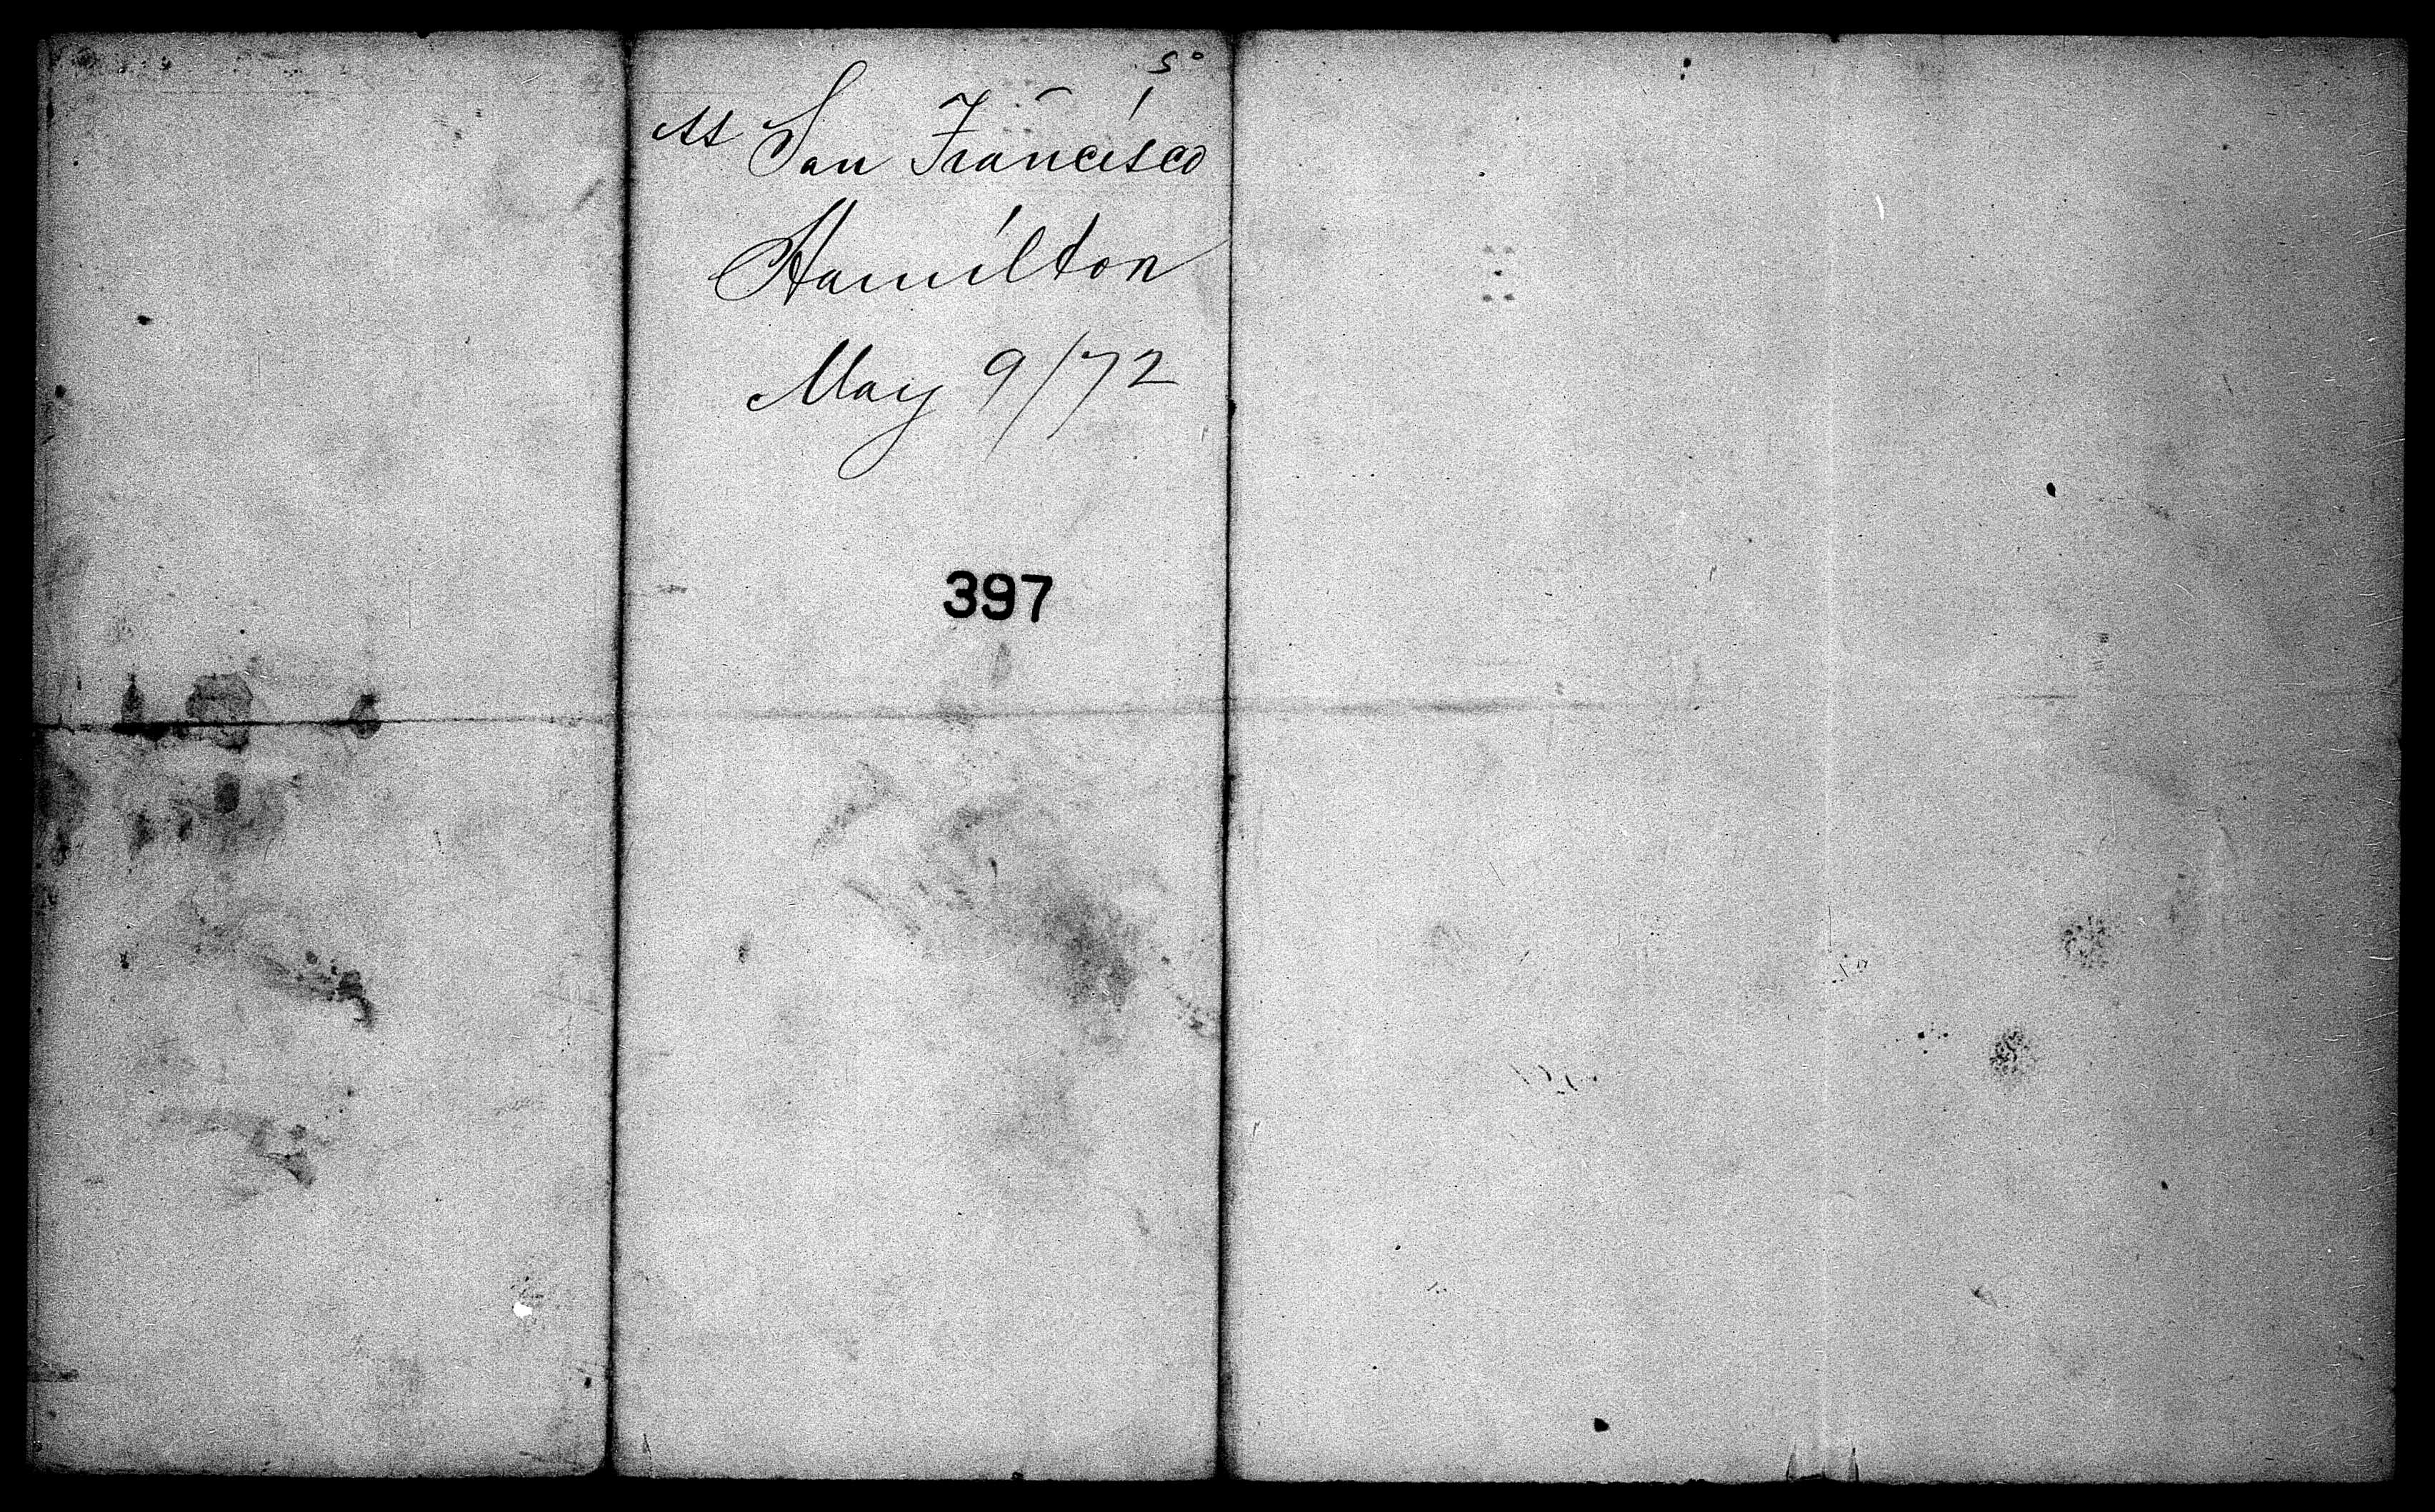 San Francisco
Hamilton
May 9/72
397